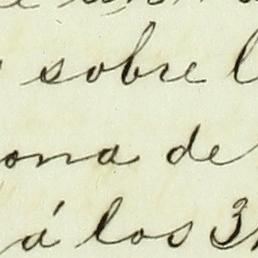 sobre
ona de
á los 3